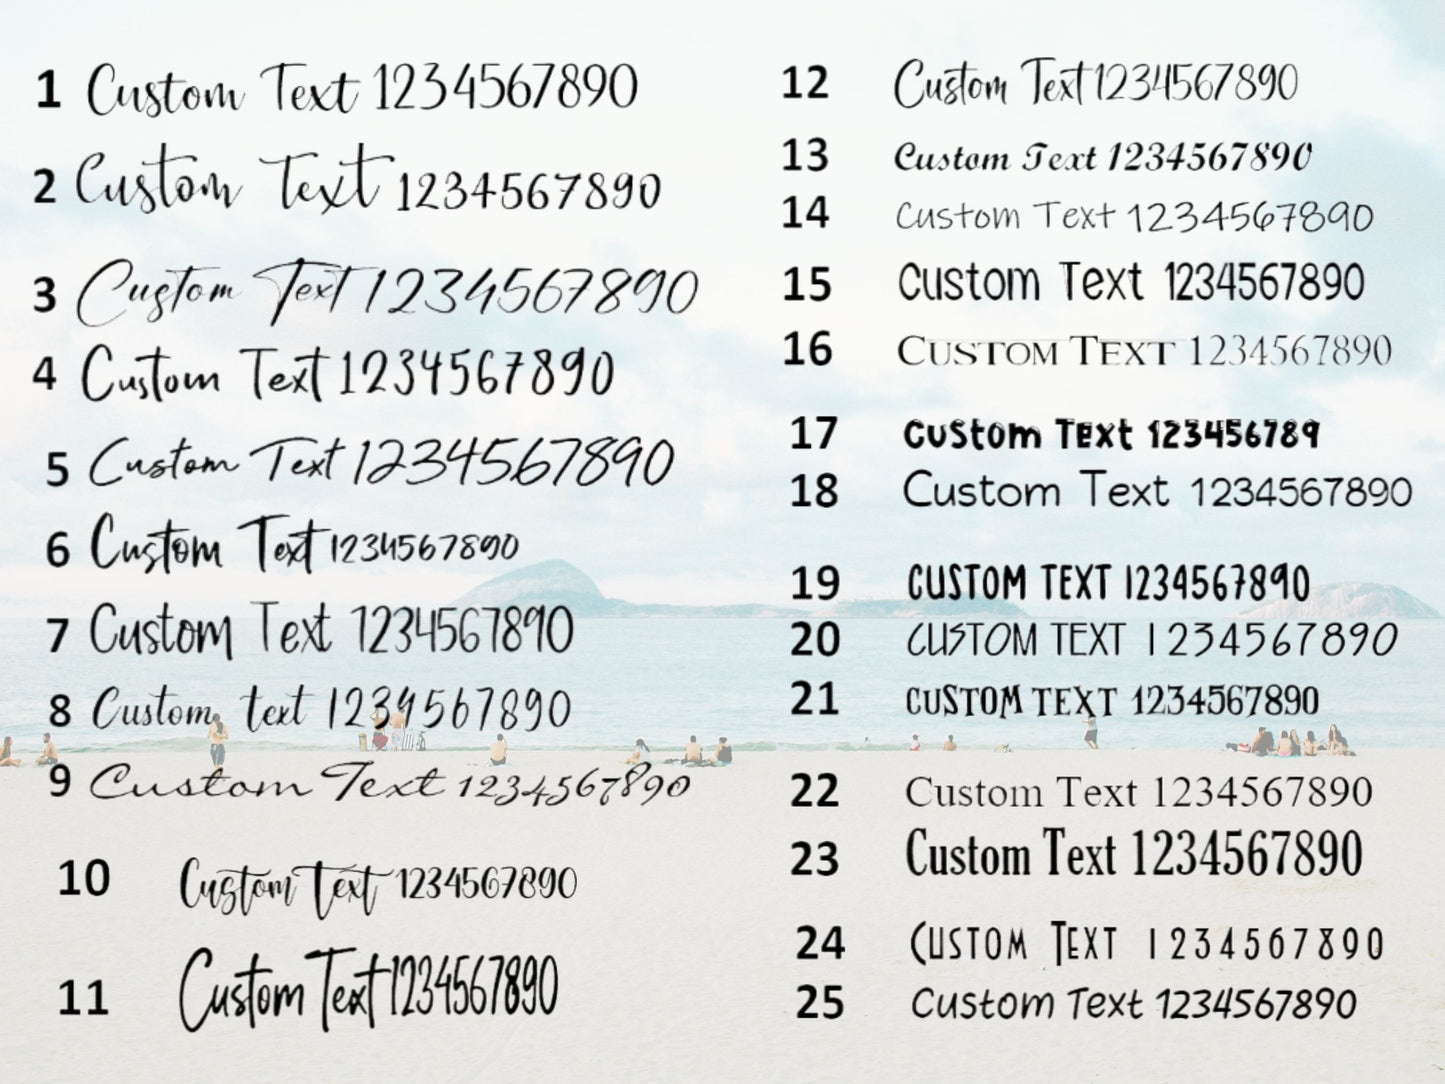 1 Custom Text 1234567890
2 Custom Text 1234567890
3 Custom Text 1234567890
4 Custom Text 1234567890
5 Custom Text 1234567890
6 Custom Text 1234567890
7 Custom Text 1234567890
8 Custom text 1234567890
9 Custom Text 1234567890
10 Custom Text 1234567890
11 Custom Text 1234567890
12 Custom Text 1234567890
13 Custom Text 1234567890
14 Custom Text 1234567890
15 Custom Text 1234567890
16 Custom Text 1234567890
17 Custom Text 123456789
18 Custom Text 1234567890
19 CUSTOM TEXT 1234567890
20 CUSTOM TEXT 1234567890
21 CUSTOM TEXT 1234567890
22 Custom Text 1234567890
23 Custom Text 1234567890
24 Custom Text 1234567890
25 Custom Text 1234567890